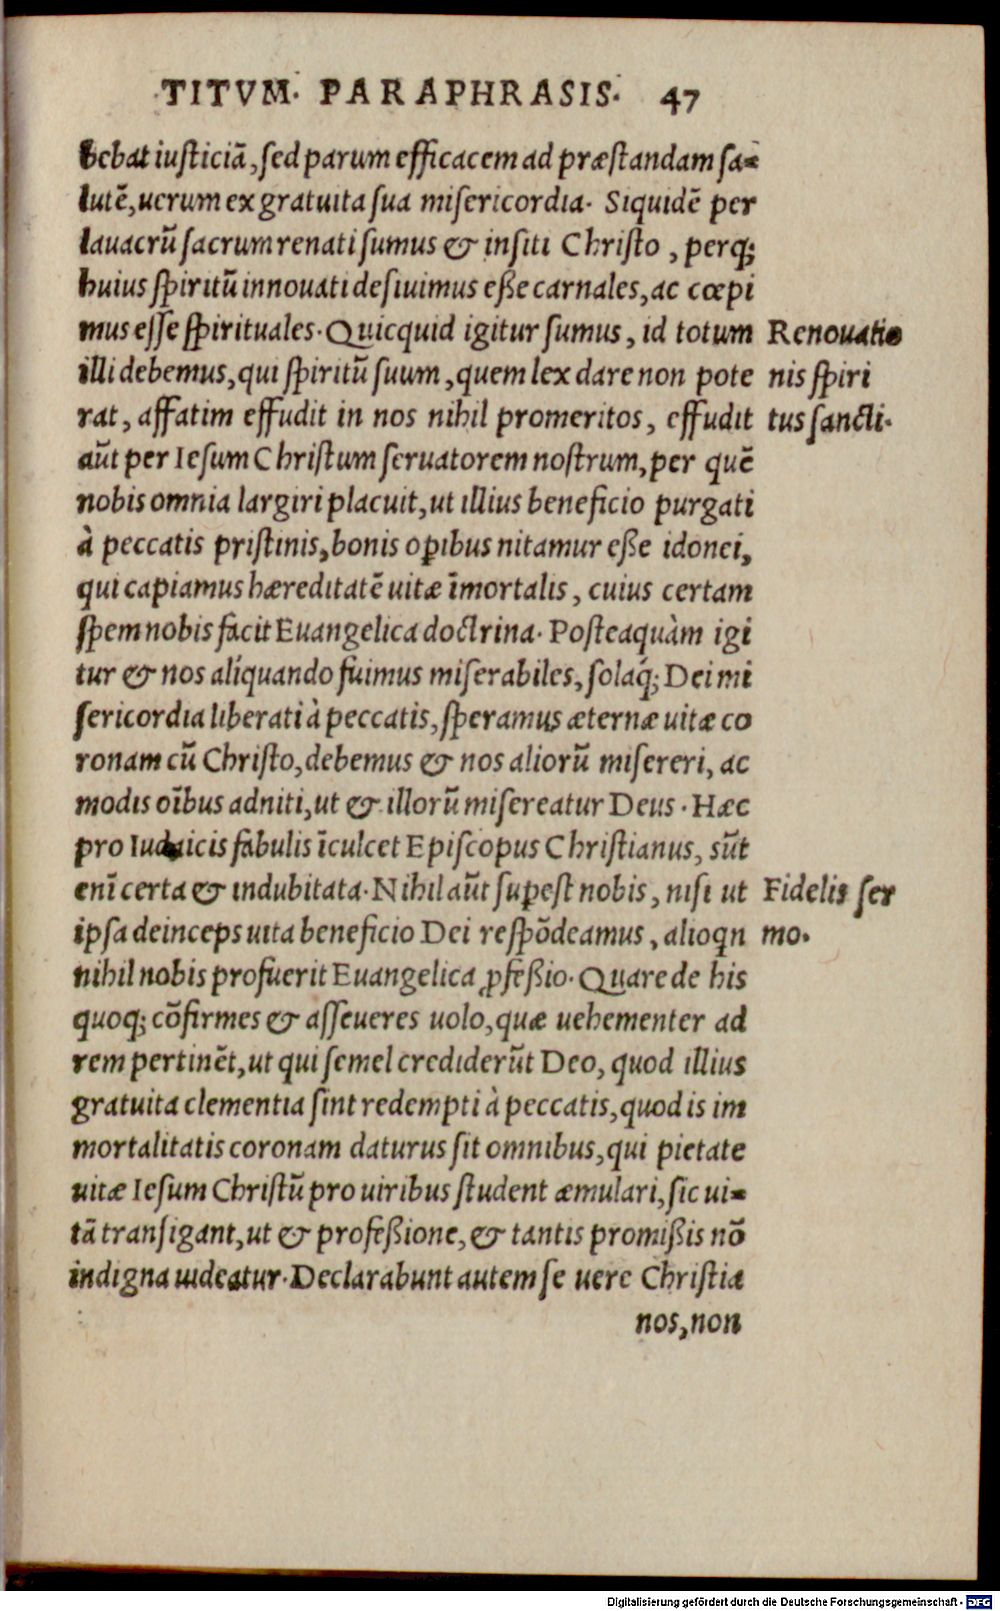 TITVM. PARAPHRASIS. 47
bebat iusticiã, sed parum efficacem ad præstandam sa-
lutẽ, uerum ex gratuita sua misericordia. Siquidẽ per
lauacrũ sacrum renati sumus & insiti Christo, perq;
huius spiritũ innouati desiuimus eße carnales, ac cœpi
mus esse spirituales. Quicquid igitur sumus, id totum
illi debemus, qui spiritũ suum, quem lex dare non pote
rat, affatim effudit in nos nihil promeritos, effudit
aũt per Iesum Christum seruatorem nostrum, per quẽ
nobis omnia largiri placuit, ut illius beneficio purgati
à peccatis pristinis, bonis oꝑibus nitamur eße idonei,
qui capiamus hæreditatẽ uitæ ĩmortalis, cuius certam
spem nobis facit Euangelica doctrina. Posteaquàm igi
tur & nos alíquando fuimus miserabiles, solaq́; Dei mi
sericordia liberati à peccatis, speramus æternæ uitæ co
ronam cũ Christo, debemus & nos aliorũ misereri, ac
modis oĩbus adniti, ut & illorũ misereatur Deus. Hæc
pro Iudaicis fabulis ĩculcet Episcopus Christianus, sũt
enĩ certa & indubitata. Nihil aũt suꝑest nobis, nisi ut
ipsa deinceps uita beneficio Dei respõdeamus, alioqn
nihil nobis profuerit Euangelica ꝓfeßio. Quare de his
quoq; cõfirmes & asseueres uolo, quæ uehementer ad
rem pertinẽt, ut qui semel crediderũt Deo, quod illius
gratuita clementia sint redempti à peccatis, quod is im
mortalitatis coronam daturus sit omnibus, qui pietate
uitæ Iesum Christũ pro uiribus student æmulari, sic ui-
tã transigant, ut & profeßione, & tantis promißis nõ
indigna uideatur. Declarabunt autem se uere Christia
nos, non
Renouatio
nis spiri
tus sancti.
Fidelis ser
mo.
Digitalisierung gefördert durch die Deutsche Forschungsgemeinschaft - DFG